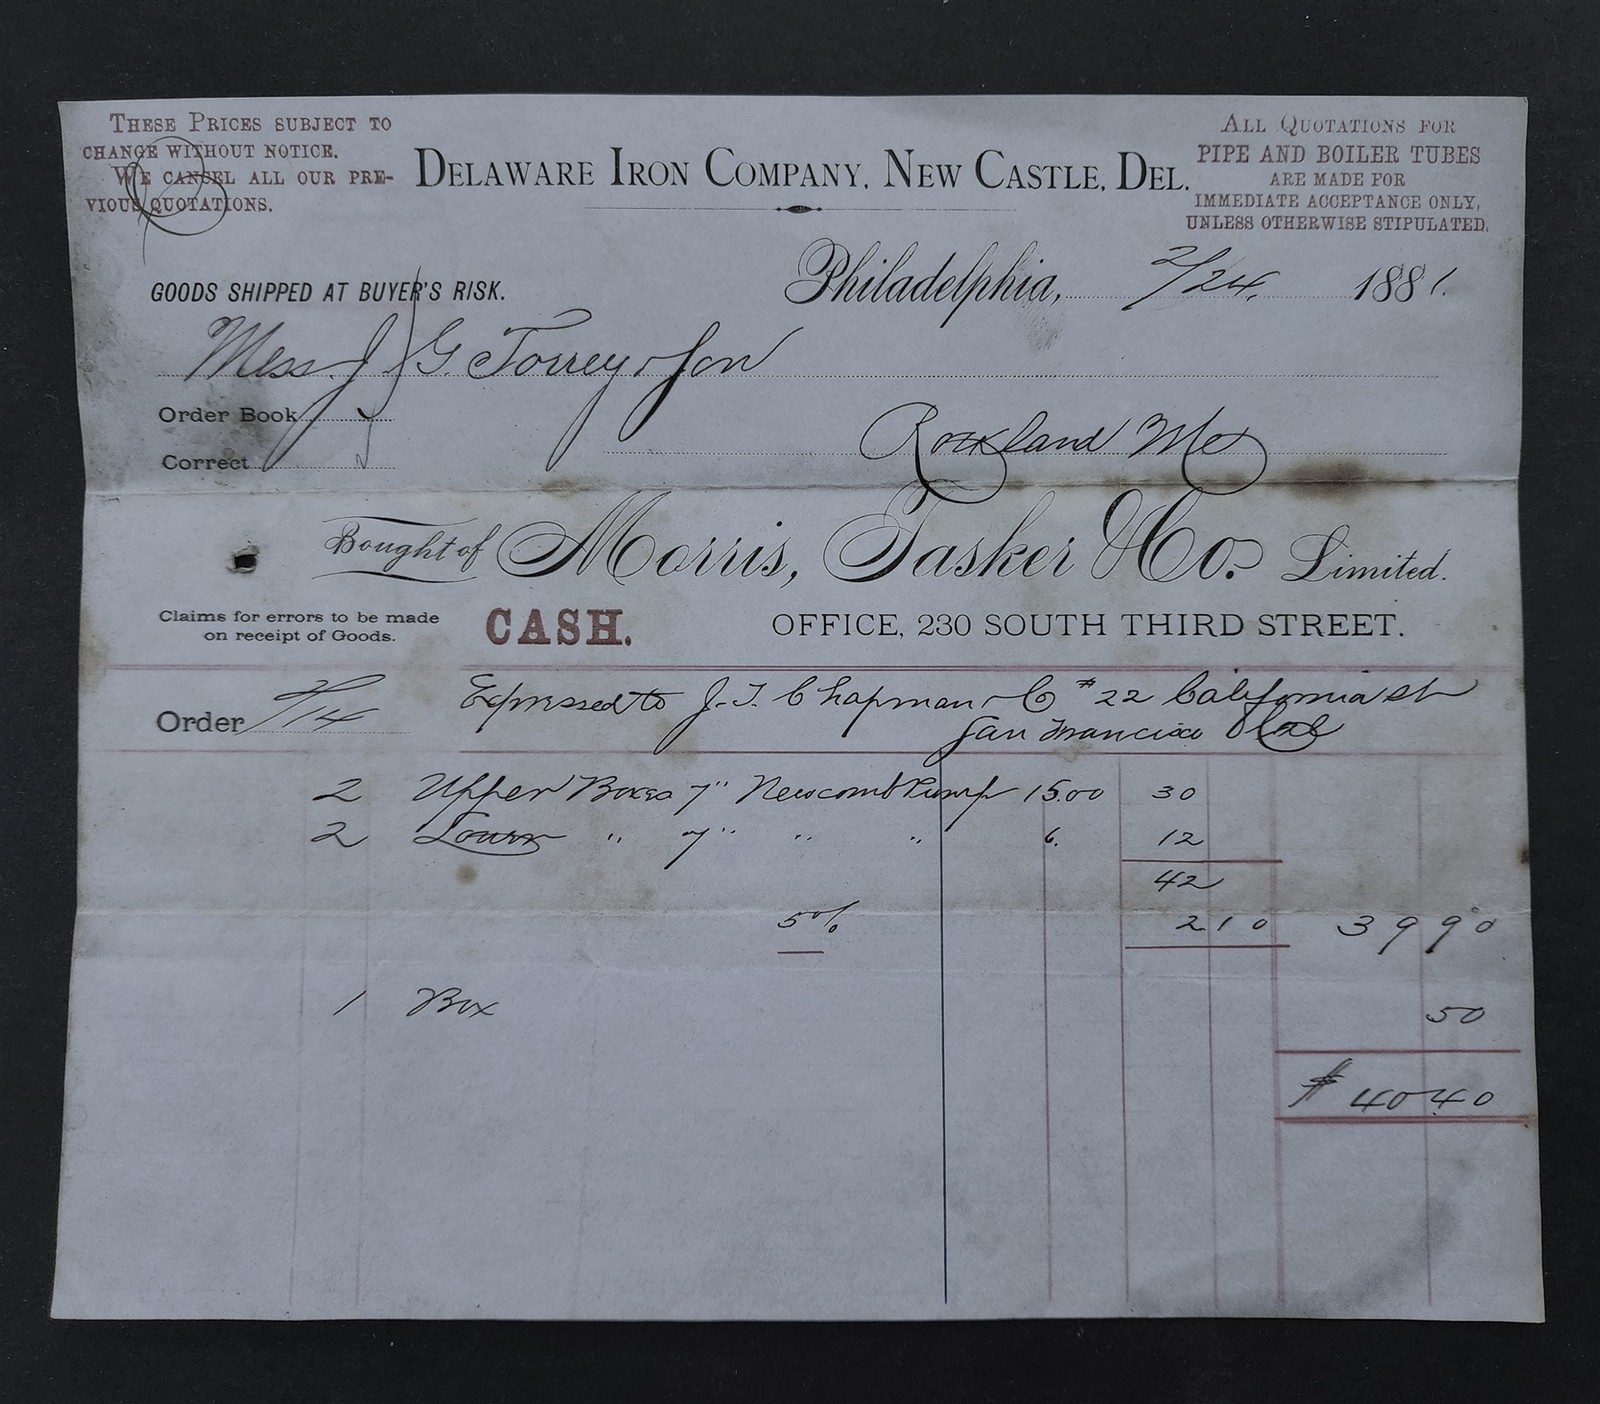 THESE PRICES SUBJECT TO
CHANGE WITHOUT NOTICE.
WE CANCEL ALL OUR PRE-
VIOUS QUOTATIONS.
DELAWARE IRON COMPANY, NEW CASTLE, DEL.
ALL QUOTATIONS FOR
PIPE AND BOILER TUBES
ARE MADE FOR
IMMEDIATE ACCEPTANCE ONLY,
UNLESS OTHERWISE STIPULATED.
GOODS SHIPPED AT BUYER'S RISK.
Philadelphia, 2/24. 1881.
Mess. J. G. Torrey & Son
Order Book
Rockland Me
Correct
Bought of Morris, Tasker & Co. Limited.
Claims for errors to be made
on receipt of Goods.
CASH.
OFFICE, 230 SOUTH THIRD STREET.
Order 2/14
Expressed to J. T. Chapman & C # 22 California St
San Francisco Cal
2 Upper Boxes 7" Newcomb Pump 15.00 30
2 Lower " 7" " " 6. 12
42
5% 2 10 39 90
1 Box 50
$ 40 40